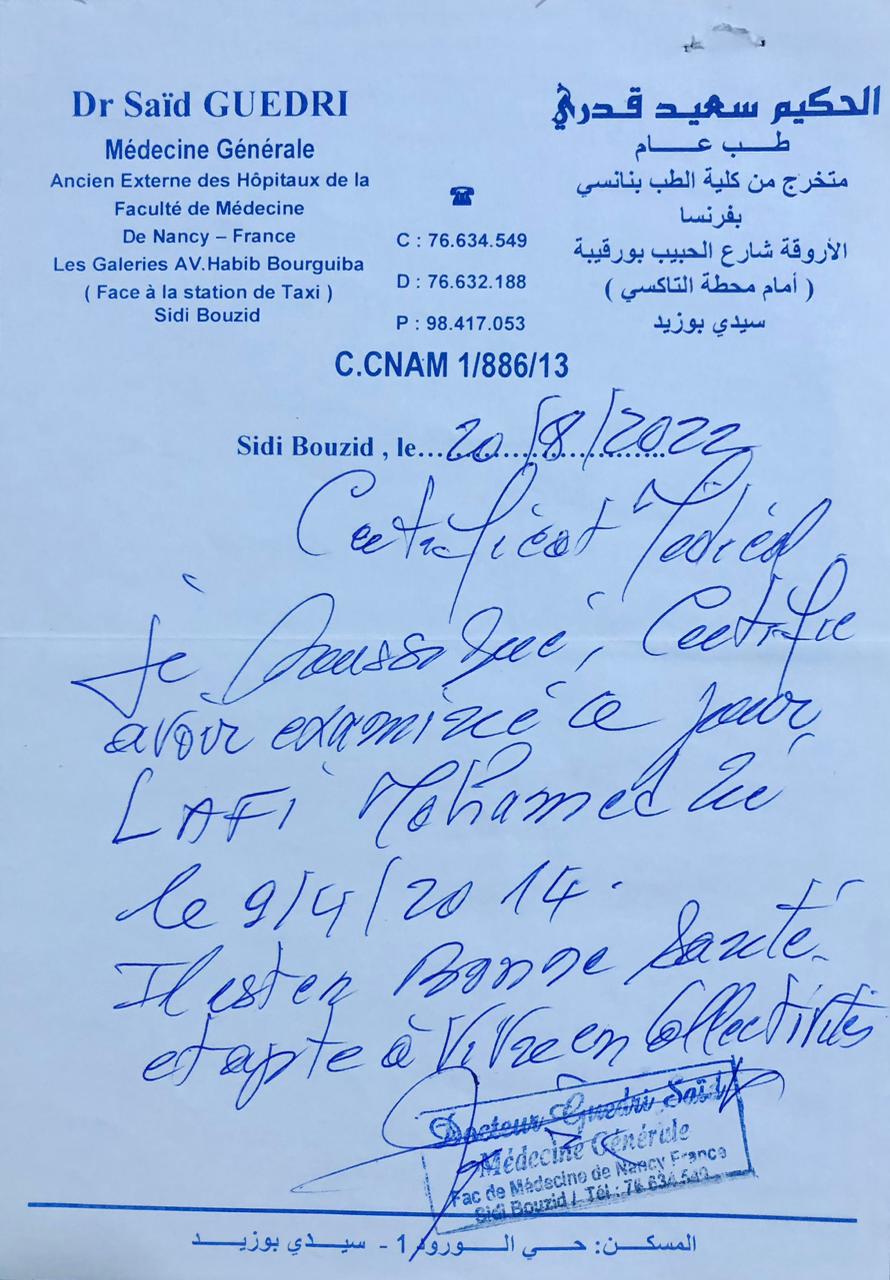 Dr Saïd GUEDRI
Médecine Générale
Ancien Externe des Hôpitaux de la
Faculté de Médecine
De Nancy – France
Les Galeries AV.Habib Bourguiba
( Face à la station de Taxi )
Sidi Bouzid
☎
C : 76.634.549
D : 76.632.188
P : 98.417.053
الحكيم سعيد قدري
طب عام
متخرج من كلية الطب بنانسي
بفرنسا
الأروقة شارع الحبيب بورقيبة
( أمام محطة التاكسي )
سيدي بوزيد
C.CNAM 1/886/13
Sidi Bouzid , le...20/8/2022
Certificat Médical
Je Soussigné, Certifie
avoir examiné ce jour
LAFI Mohamed né
le 9/4/2014.
Il est en Bonne Santé
et apte à Vivre en Collectivités
Docteur Guedri Saïd
Médecine Générale
Fac de Médecine de Nancy France
Sidi Bouzid / Tél : 76 634 549
المسكن: حي الورود 1 - سيدي بوزيد